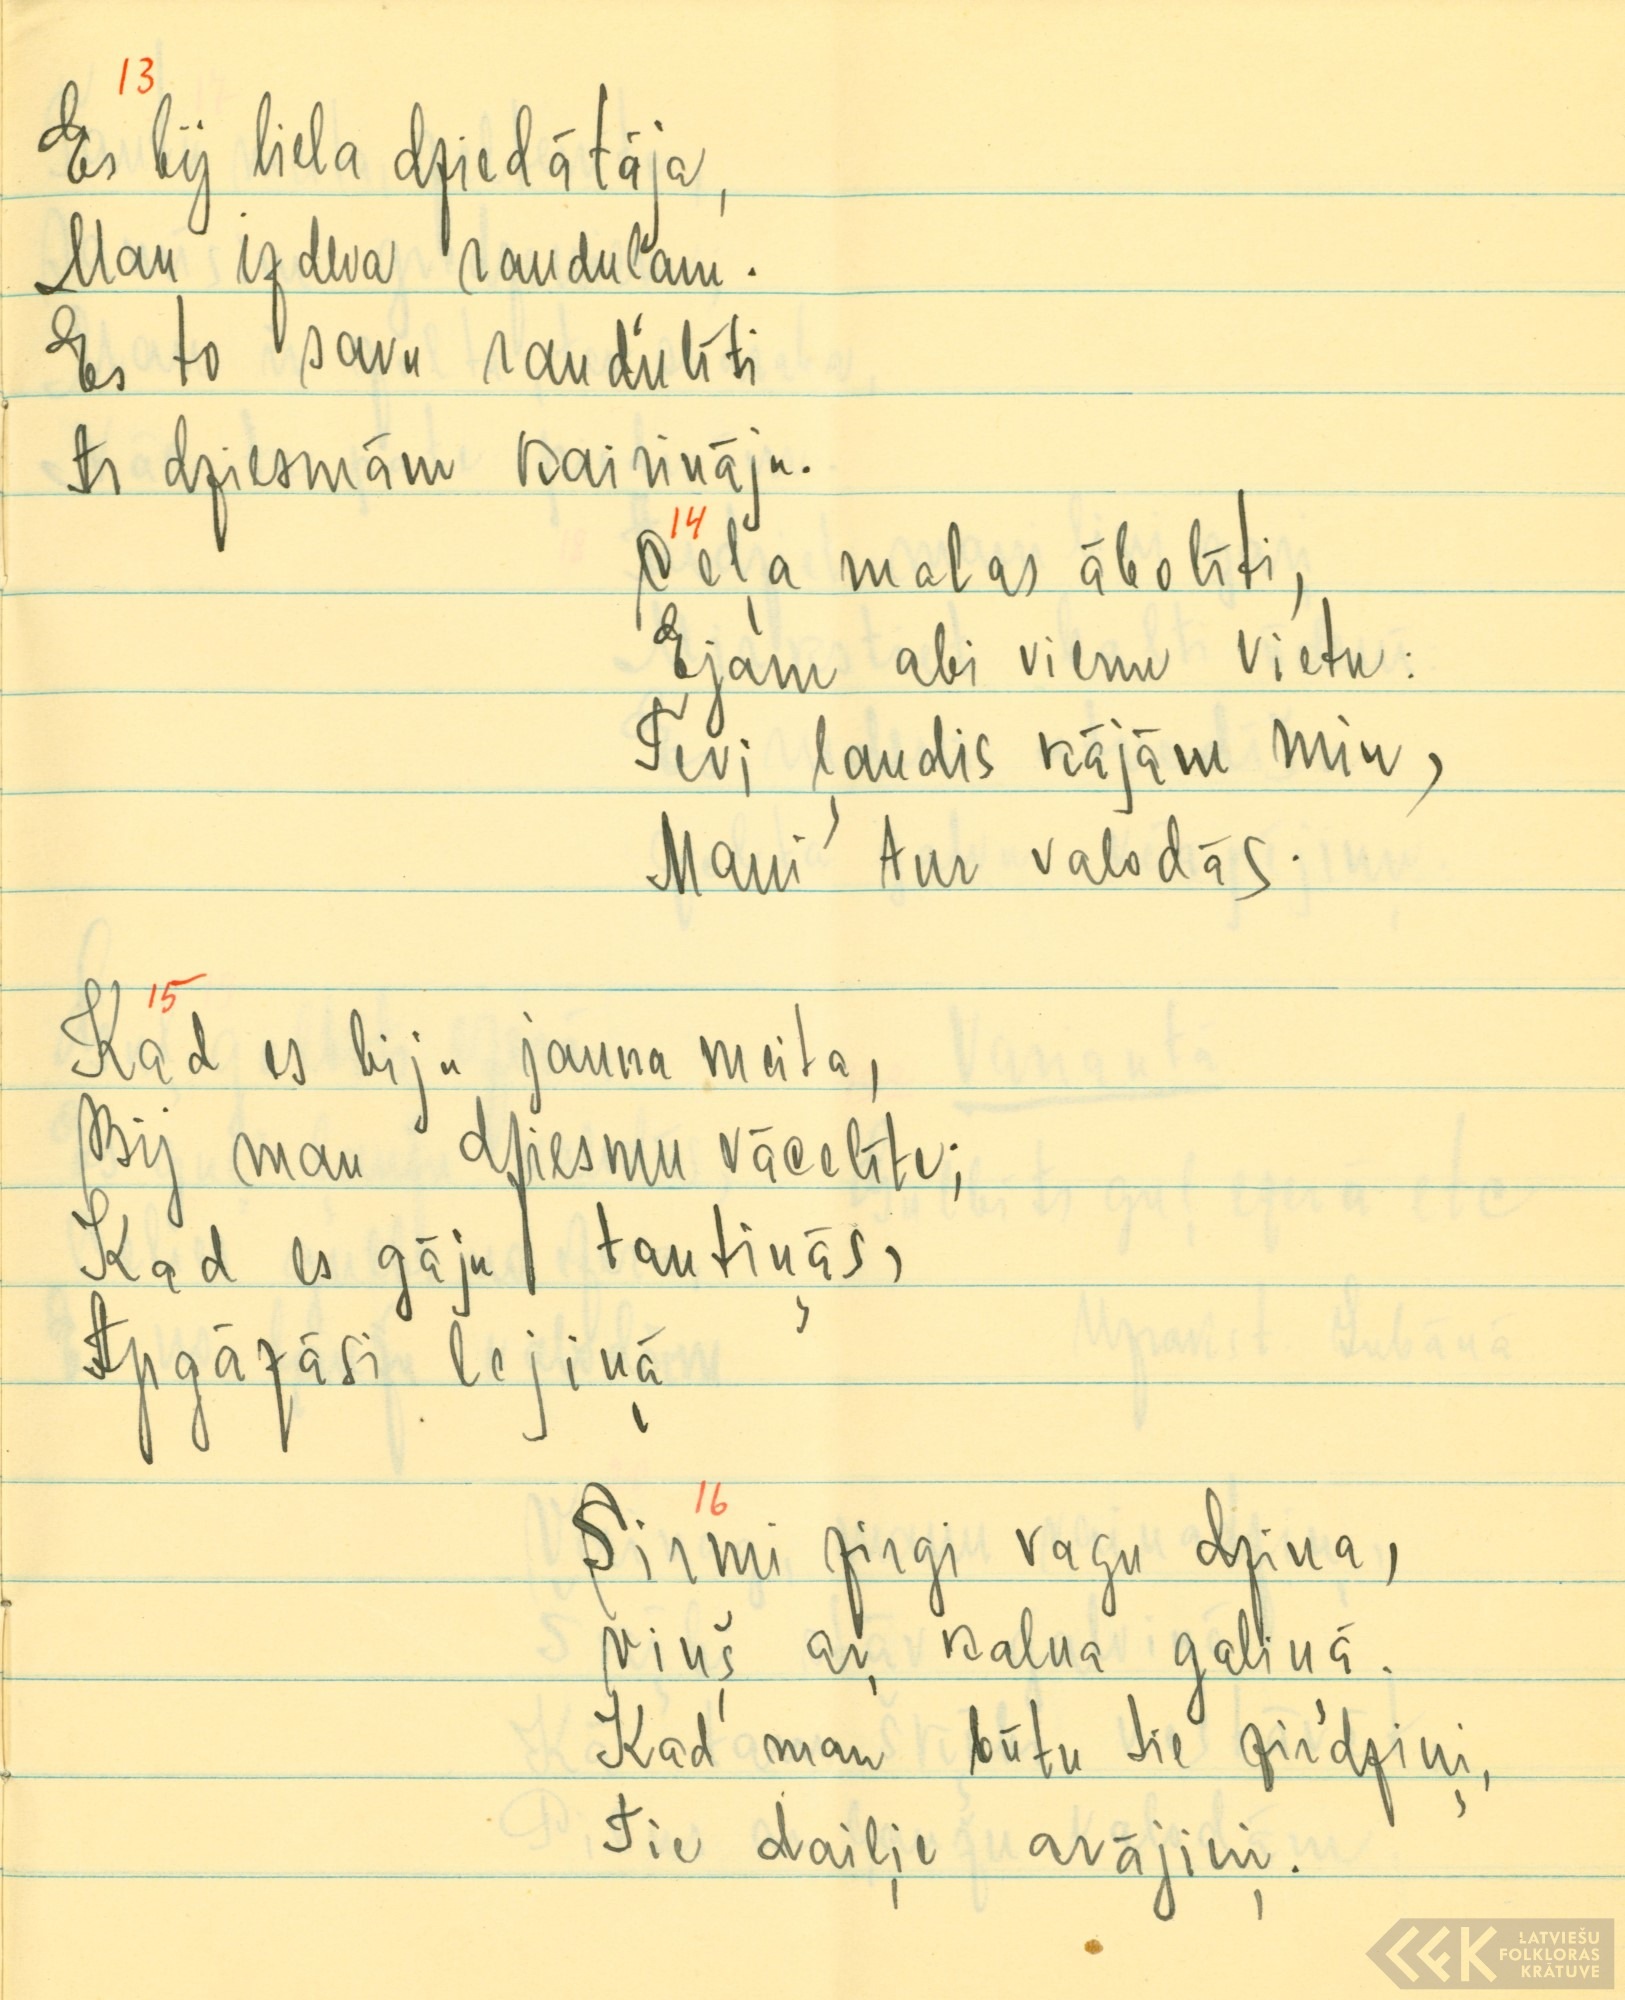 13
Es bij liela dziedātāja,
Man izdeva raudul'am.
Es to savu raud'ulīti
Ar dziesmām kairināju.
14
Ceļa malas ābolīti,
Ejam abi vienu vietu:
Tevi ļaudis kājām min,
Mani tur valodās.
15
Kad es biju jauna meita,
Bij man dziesmu vācelīte;
Kad es gāju tautiņās,
Apgāzāsi lejiņā
16
Sirmi zirgi vagu dzina,
Viņš aŗ kalna galiņā.
Kad man būtu tie zirdziņi,
Tie dailiļe arājiņi.
LATVIEŠU
FOLKLORAS
KRĀTUVE